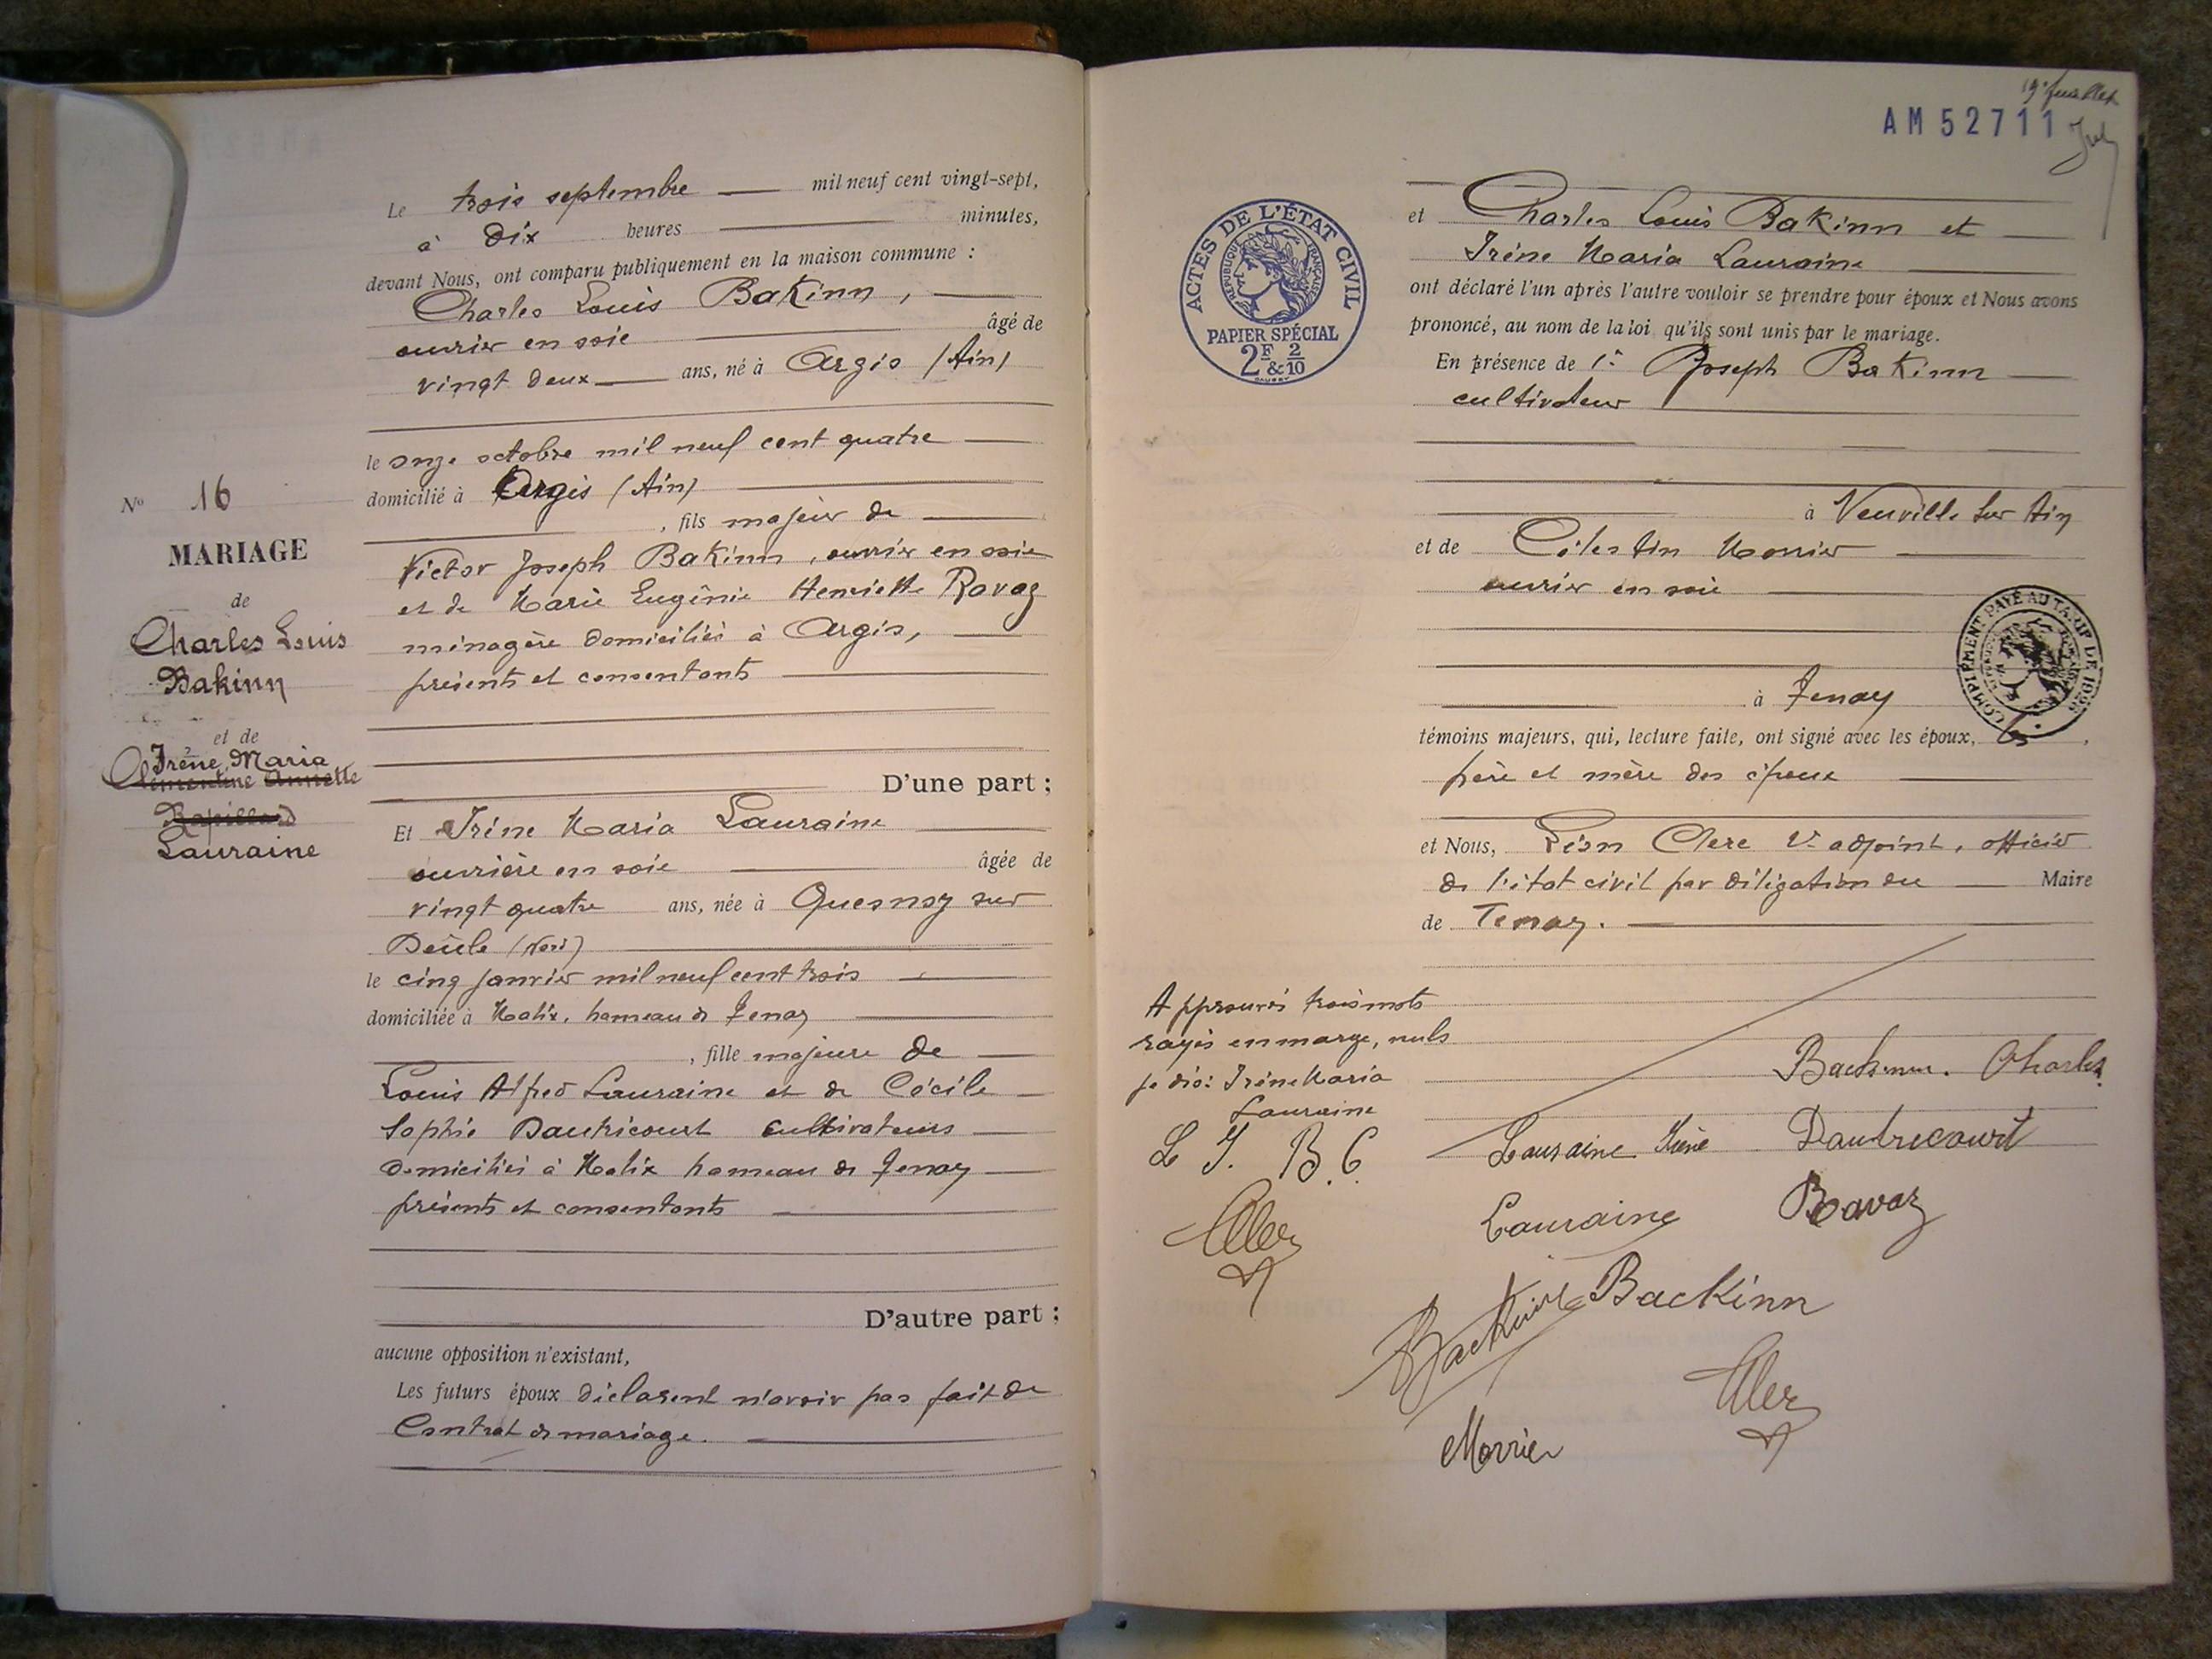 Le trois septembre mil neuf cent vingt-sept,
à Dix heures minutes,
devant Nous, ont comparu publiquement en la maison commune :
Charles Louis Bakinn,
ouvrier en soie âgé de
vingt deux ans, né à Argis (Ain)
le onze octobre mil neuf cent quatre
domicilié à Argis (Ain)
, fils majeur de
Victor Joseph Bakinn, ouvrier en soie
et de Marie Eugénie Henriette Ravaz
ménagère domiciliés à Argis,
présents et consentants
D'une part ;
Et Irène Maria Lauraine
ouvrière en soie âgée de
vingt quatre ans, née à Quesnoy sur
Deûle (Nord)
le cinq janvier mil neuf cent trois
domiciliée à Malix, hameau de Tenay
, fille majeure de
Louis Alfred Lauraine et de Cécile
Sophie Dautricourt cultivateurs
domiciliés à Malix hameau de Tenay
présents et consentants
D'autre part ;
aucune opposition n'existant,
Les futurs époux déclarent n'avoir pas fait de
Contrat de mariage.
No 16
MARIAGE
de
Charles Louis
Bakinn
et de
Irène Maria
Clémentine Annette
Rapillard
Lauraine
19e feuillet
AM 52711
ACTES DE L'ÉTAT CIVIL
RÉPUBLIQUE FRANÇAISE
PAPIER SPÉCIAL
2F & 2/10
et Charles Louis Bakinn et
Irène Maria Lauraine
ont déclaré l'un après l'autre vouloir se prendre pour époux et Nous avons
prononcé, au nom de la loi, qu'ils sont unis par le mariage.
En présence de 1° Joseph Bakinn
cultivateur
à Neuville sur Ain
et de Célestin Morrier
ouvrier en soie
COMPLÉMENT PAYÉ AU TARIF DE
à Tenay
témoins majeurs, qui, lecture faite, ont signé avec les époux, les
père et mère des époux
et Nous, Léon Clerc adjoint, officier
de l'état civil par délégation du Maire
de Tenay.
Approuvés trois mots
rayés en marge, nuls
je dis: Irène Maria
Lauraine
L I. B. C.
Backinn. Charles
Lauraine Irène Dautrecourt
Lauraine Ravaz
Backinn Backinn
Morrier